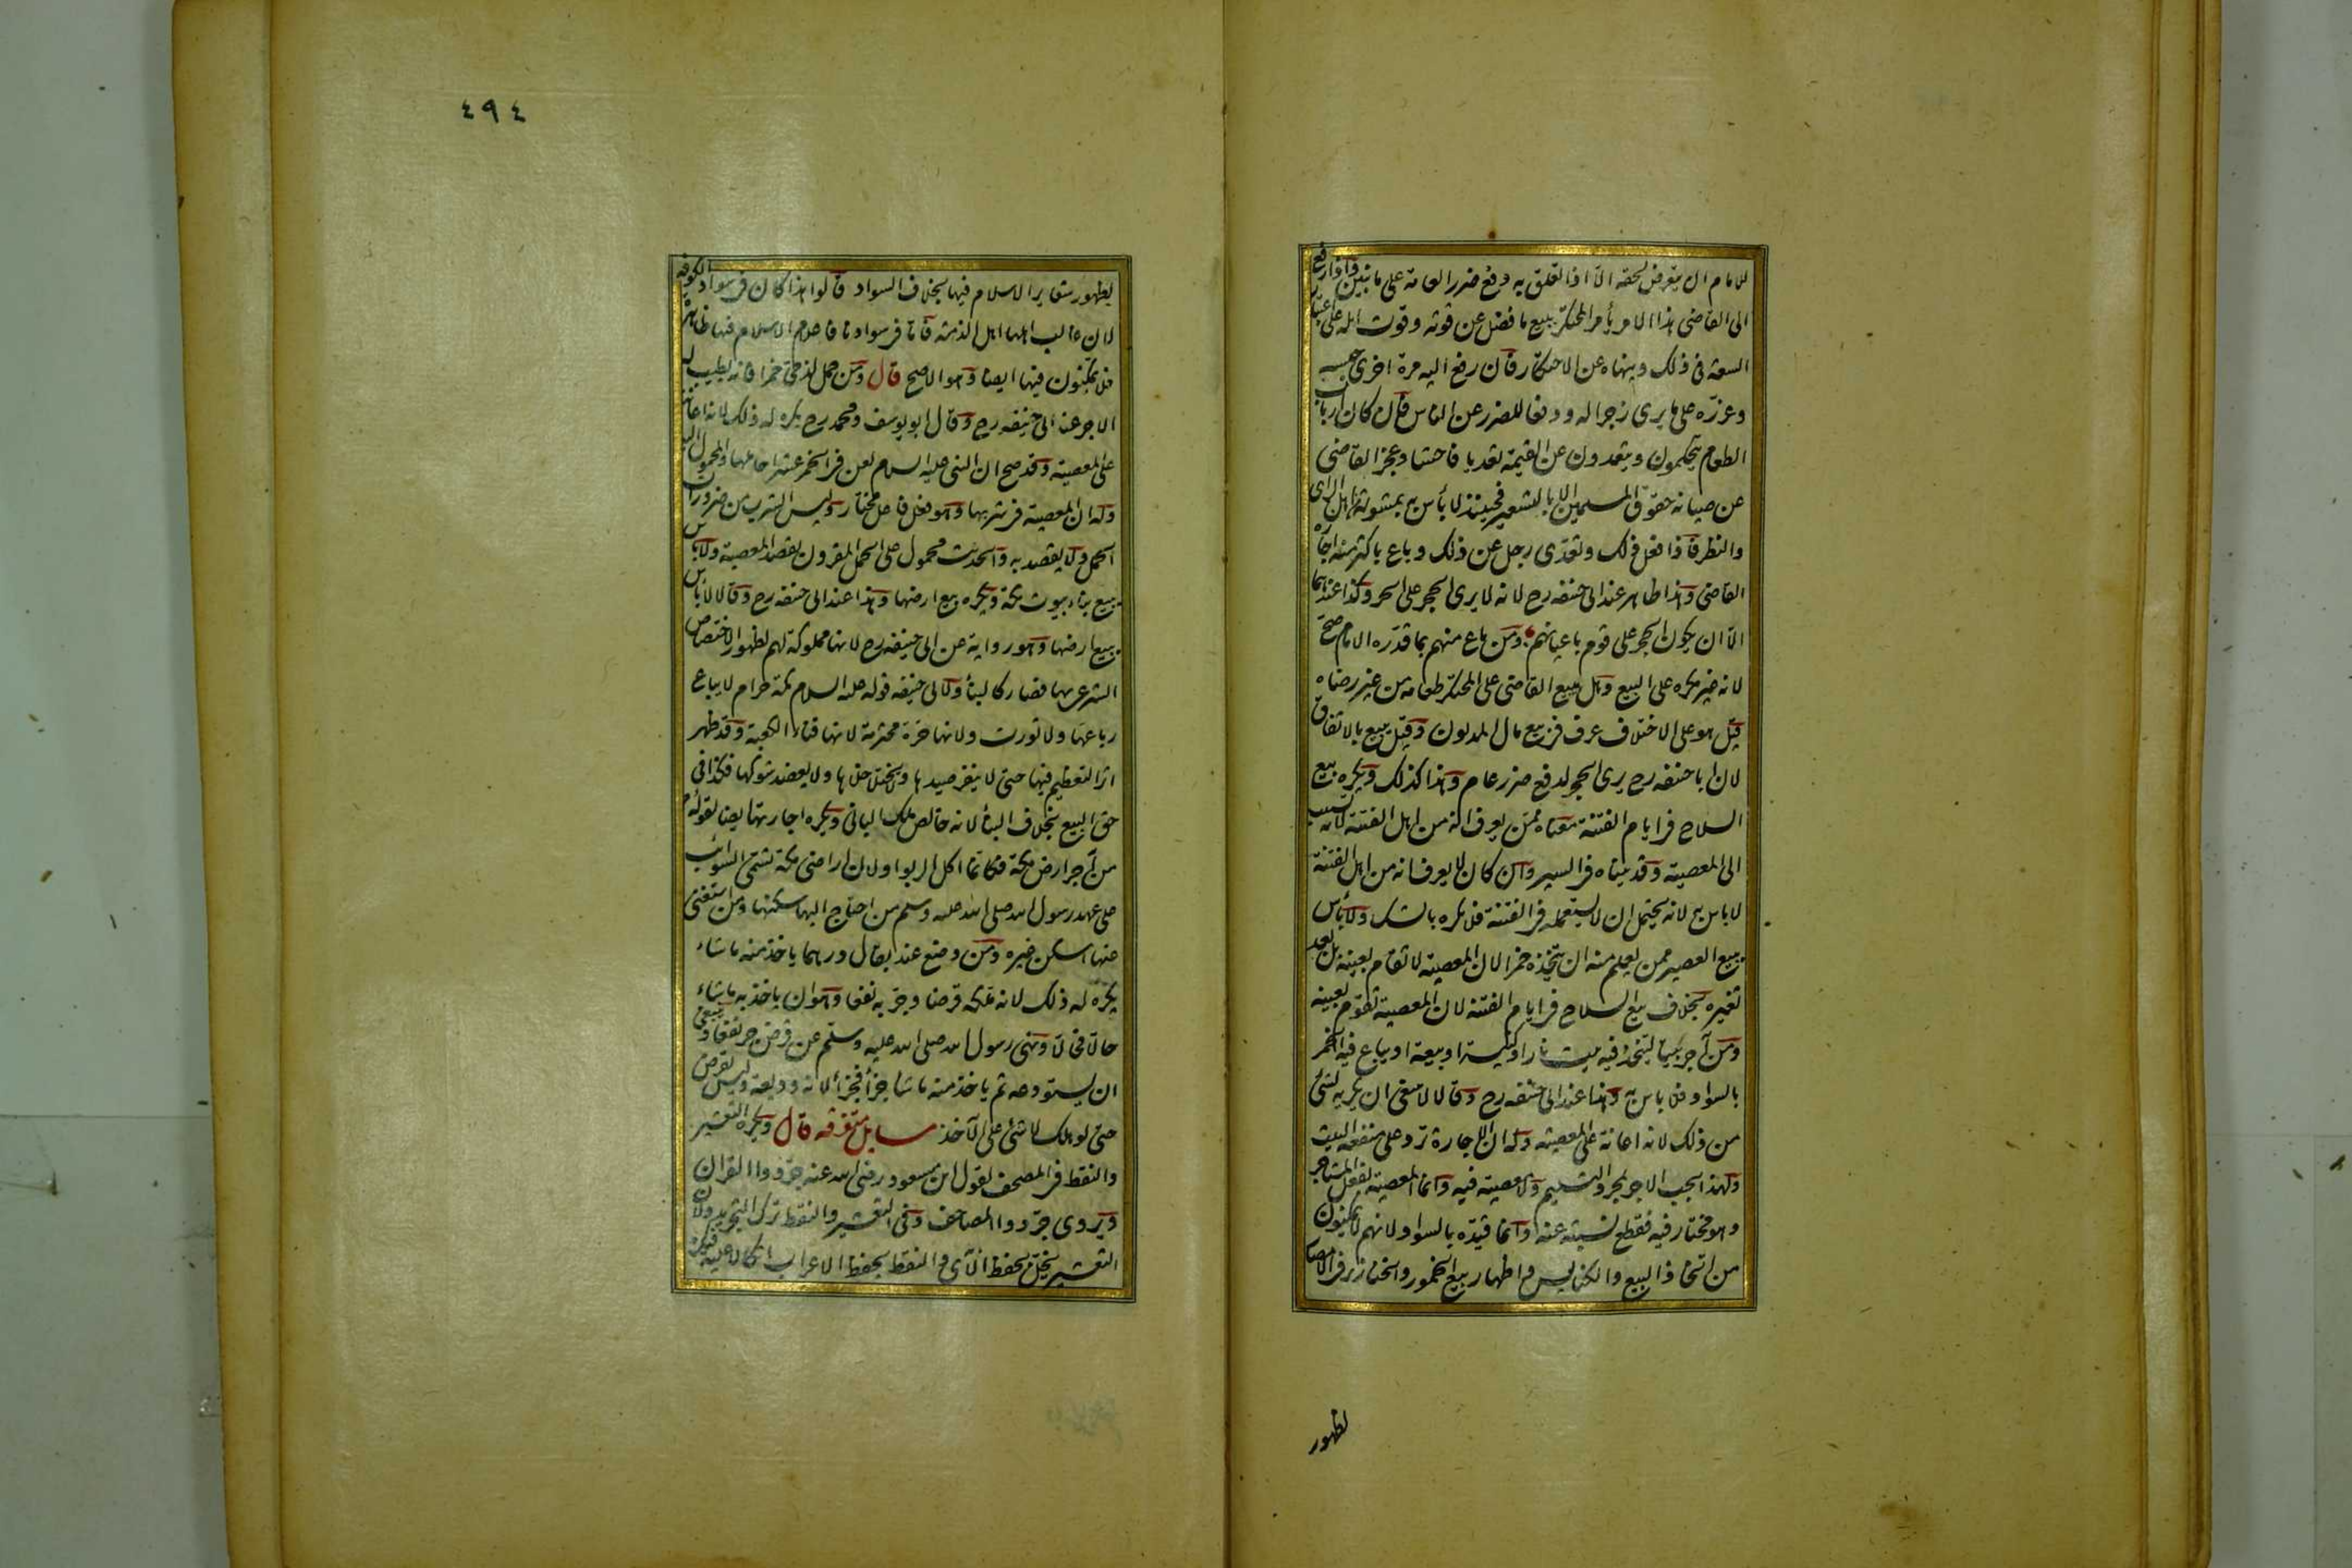 للامام ان يتعرض لحقه الا اذا تعلق به دفع ضرر العامة على ما نبين واذا رفع
الى القاضى هذا الامر يأمر المحتكر ببيع ما فضل عن قوته وقوت اهله على اعتبار
السعة فى ذلك وينهاه عن الاحتكار فان رفع اليه مرة اخرى حبسه
وعزره على ما يرى زجرا له ودفعا للضرر عن الناس فان كان ارباب
الطعام يتحكمون ويتعدون عن القيمة تعديا فاحشا وعجز القاضى
عن صيانة حقوق المسلمين الا بالتسعير فحينئذ لا بأس به بمشورة اهل الراى
والنظر فاذا فعل ذلك وتعدى رجل عن ذلك وباع باكثر منه اجازه
القاضى وهذا ظاهر عند ابى حنيفه رح لانه لا يرى الحجر على الحر وكذا عندهما
الا ان يكون الحجر على قوم باعيانهم ومن باع منهم بما قدره الامام صح
لانه غير مكره على البيع وهل يبيع القاضى على المحتكر طعامه من غير رضاه
قيل هو على الاختلاف عرف فى بيع مال المديون وقيل يبيع بالاتفاق
لان ابا حنيفه رح يرى الحجر لدفع ضرر عام وهذا كذلك ويكره بيع
السلاح فى ايام الفتنة معناه ممن يعرف انه من اهل الفتنة لانه تسبيب
الى المعصية وقد بيناه فى السير وان كان لا يعرف انه من اهل الفتنة
لا باس به لانه يحتمل ان لا يستعمله فى الفتنة فلا يكره بالشك ولا بأس
ببيع العصير ممن يعلم منه ان يتخذه خمرا لان المعصية لا تقام بعينه بل بعد
تغيره بخلاف بيع السلاح فى ايام الفتنة لان المعصية تقوم بعينه
ومن آجر بيتا ليتخذ فيه بيت نار او كنيسة او بيعة او يباع فيه الخمر
بالسواد فلا باس به وهذا عند ابى حنيفه رح وقالا لا ينبغى ان يكريه لشئ
من ذلك لانه اعانة على المعصية وله ان الاجارة ترد على منفعة البيت
ولهذا يجب الاجر بمجرد التسليم ولا معصية فيه وانما المعصية بفعل المستاجر
وهو مختار فيه فقطع نسبته عنه وانما قيده بالسواد لانهم لا يمكنون
من اتخاذ البيع والكنايس و اظهار بيع الخمور والخنازير فى الامصار
لظهور
٤٩٤
لظهور شعاير الاسلام فيها بخلاف السواد قالوا هذا كان فى سواد الكوفة
لان غالب اهلها اهل الذمة فاما فى سوادنا فاعلام الاسلام فيها ظاهرة
فلا يمكنون فيها ايضا وهو الاصح قال ومن حمل لذمى خمرا فانه يطيب له
الاجر عند ابى حنيفه رح وقال ابو يوسف ومحمد رح يكره له ذلك لانه اعانة
على المعصية وقد صح ان النبى عليه السلام لعن فى الخمر عشرا حاملها والمحمول اليه
وله ان المعصية فى شربها وهو فعل فاعل مختار وليس الشرب من ضرورات
الحمل ولا يقصد به والحديث محمول على الحمل المقرون بقصد المعصية ولا بأس
ببيع بناء بيوت مكة ويكره بيع ارضها وهذا عند ابى حنيفه رح وقالا لا بأس
ببيع ارضها وهو رواية عن ابى حنيفه رح لانها مملوكة لهم لظهور الاختصاص
الشرعى بها فصار كالبنأ ولابى حنيفه قوله عليه السلام مكة حرام لا يباع
رباعها ولا تورث ولانها حرة محترمة لانها فناء الكعبة وقد ظهر
اثر التعظيم فيها حتى لا ينفر صيدها ولا يختلى خلاها ولا يعضد شوكها فكذا فى
حق البيع بخلاف البنأ لانه خالص ملك البانى ويكره اجارتها ايضا لقوله عم
من آجر ارض مكة فكانما اكل الربوا ولان اراضى مكة تسمى السوائب
على عهد رسول الله صلى الله عليه وسلم من احتاج اليها سكنها ومن استغنى
عنها اسكن غيره ومن وضع عند بقال درهما ياخذ منه ما شاء
يكره له ذلك لانه ملكه قرضا وجر به نفعا وهو ان ياخذ به ما شاء
حالا فحالا ونهى رسول الله صلى الله عليه وسلم عن قرض جر نفعا وينبغى
ان يستودعه ثم ياخذ منه ما شا جزأ فجزأ لانه وديعة وليس بقرض
حتى لو هلك لا شئ على الآخذ مسايل متفرقه قال ويكره التعشير
والنقط فى المصحف لقول ابن مسعود رضى الله عنه جردوا القران
ويروى جردوا المصاحف وفى التعشير والنقط ترك التجريد ولان
التعشير يخل بحفظ الآى و النقط بحفظ الاعراب اتكالا عليه فيكره